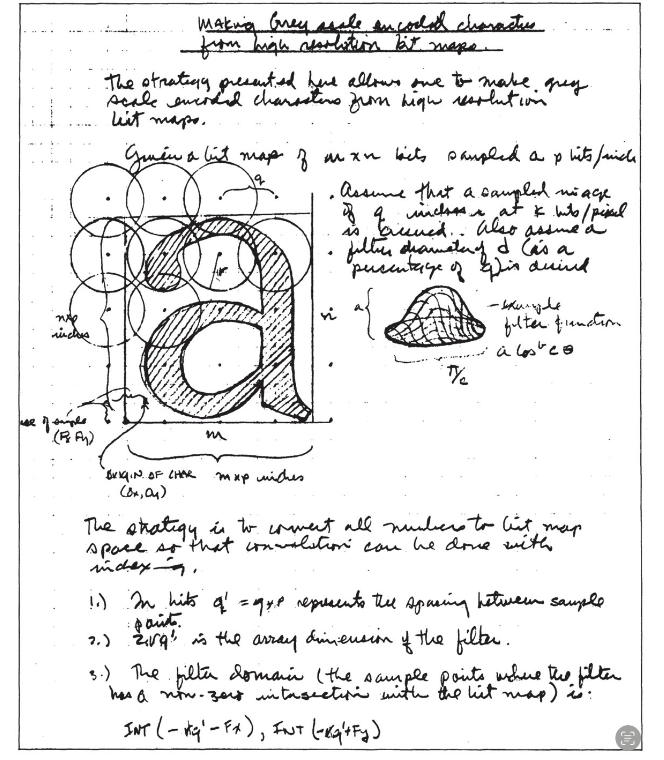 Making Grey scale encoded characters
from high resolution bit maps.
The strategy presented here allows one to make grey
scale encoded characters from high resolution
bit maps.
Given a bit map of m x n bits sampled a p bits/inch
q
. Assume that a sampled image
of q inches at k bits/pixel
is desired. Also assume a
filter diameter of d (as a
percentage of q) is desired
r
n
nxp
inches
a
- example
filter function
a cos c θ
π/c
(Fx Fy)
m
ORIGIN OF CHAR mxp inches
(Ox, Oy)
The strategy is to convert all numbers to bit map
space so that convolution can be done with
indexing.
1.) In bits q' = q x p represents the spacing between sample
points.
2.) is the array dimension of the filter.
3.) The filter domain (the sample points where the filter
has a non-zero intersection with the bit map) is:
INT (- q' - Fx), INT (- q' + Fy)